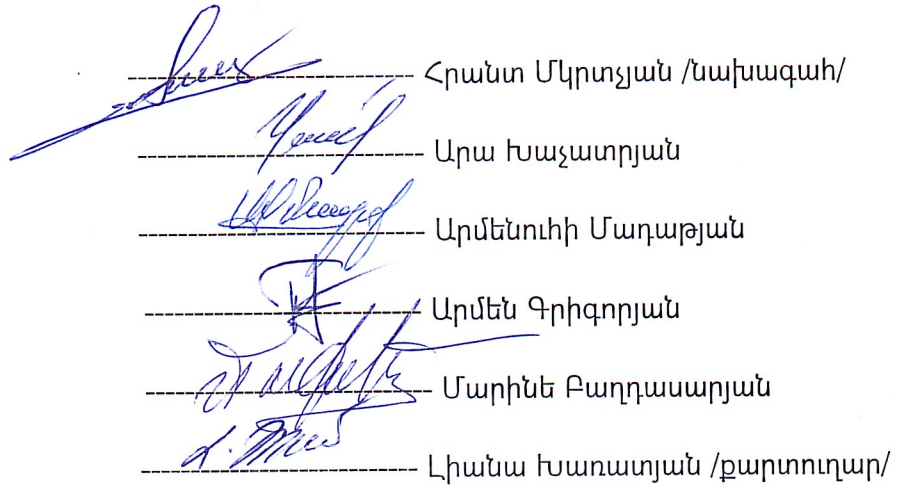 -------------------------------- Հրանտ Մկրտչյան /նախագահ/
-------------------------------- Արա Խաչատրյան
-------------------------------- Արմենուհի Մադաթյան
-------------------------------- Արմեն Գրիգորյան
-------------------------------- Մարինե Բաղդասարյան
-------------------------------- Լիանա Խառատյան /քարտուղար/